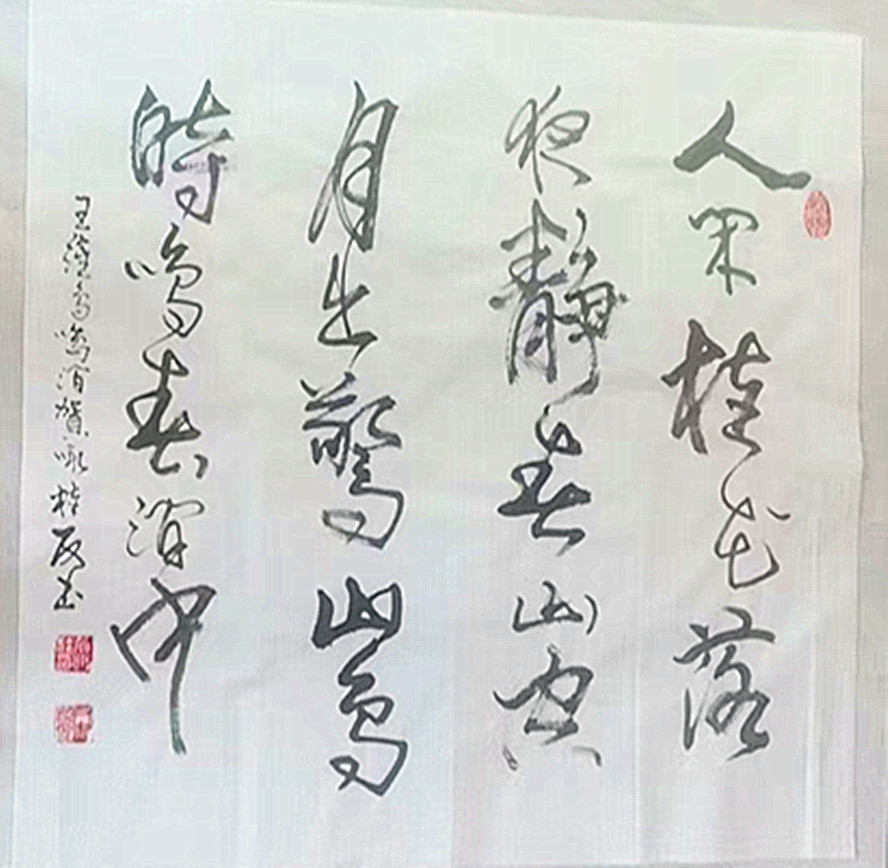 人闲桂花落
夜静春山空
月出惊山鸟
时鸣春涧中
王维鸟鸣涧 贺咏桂 书